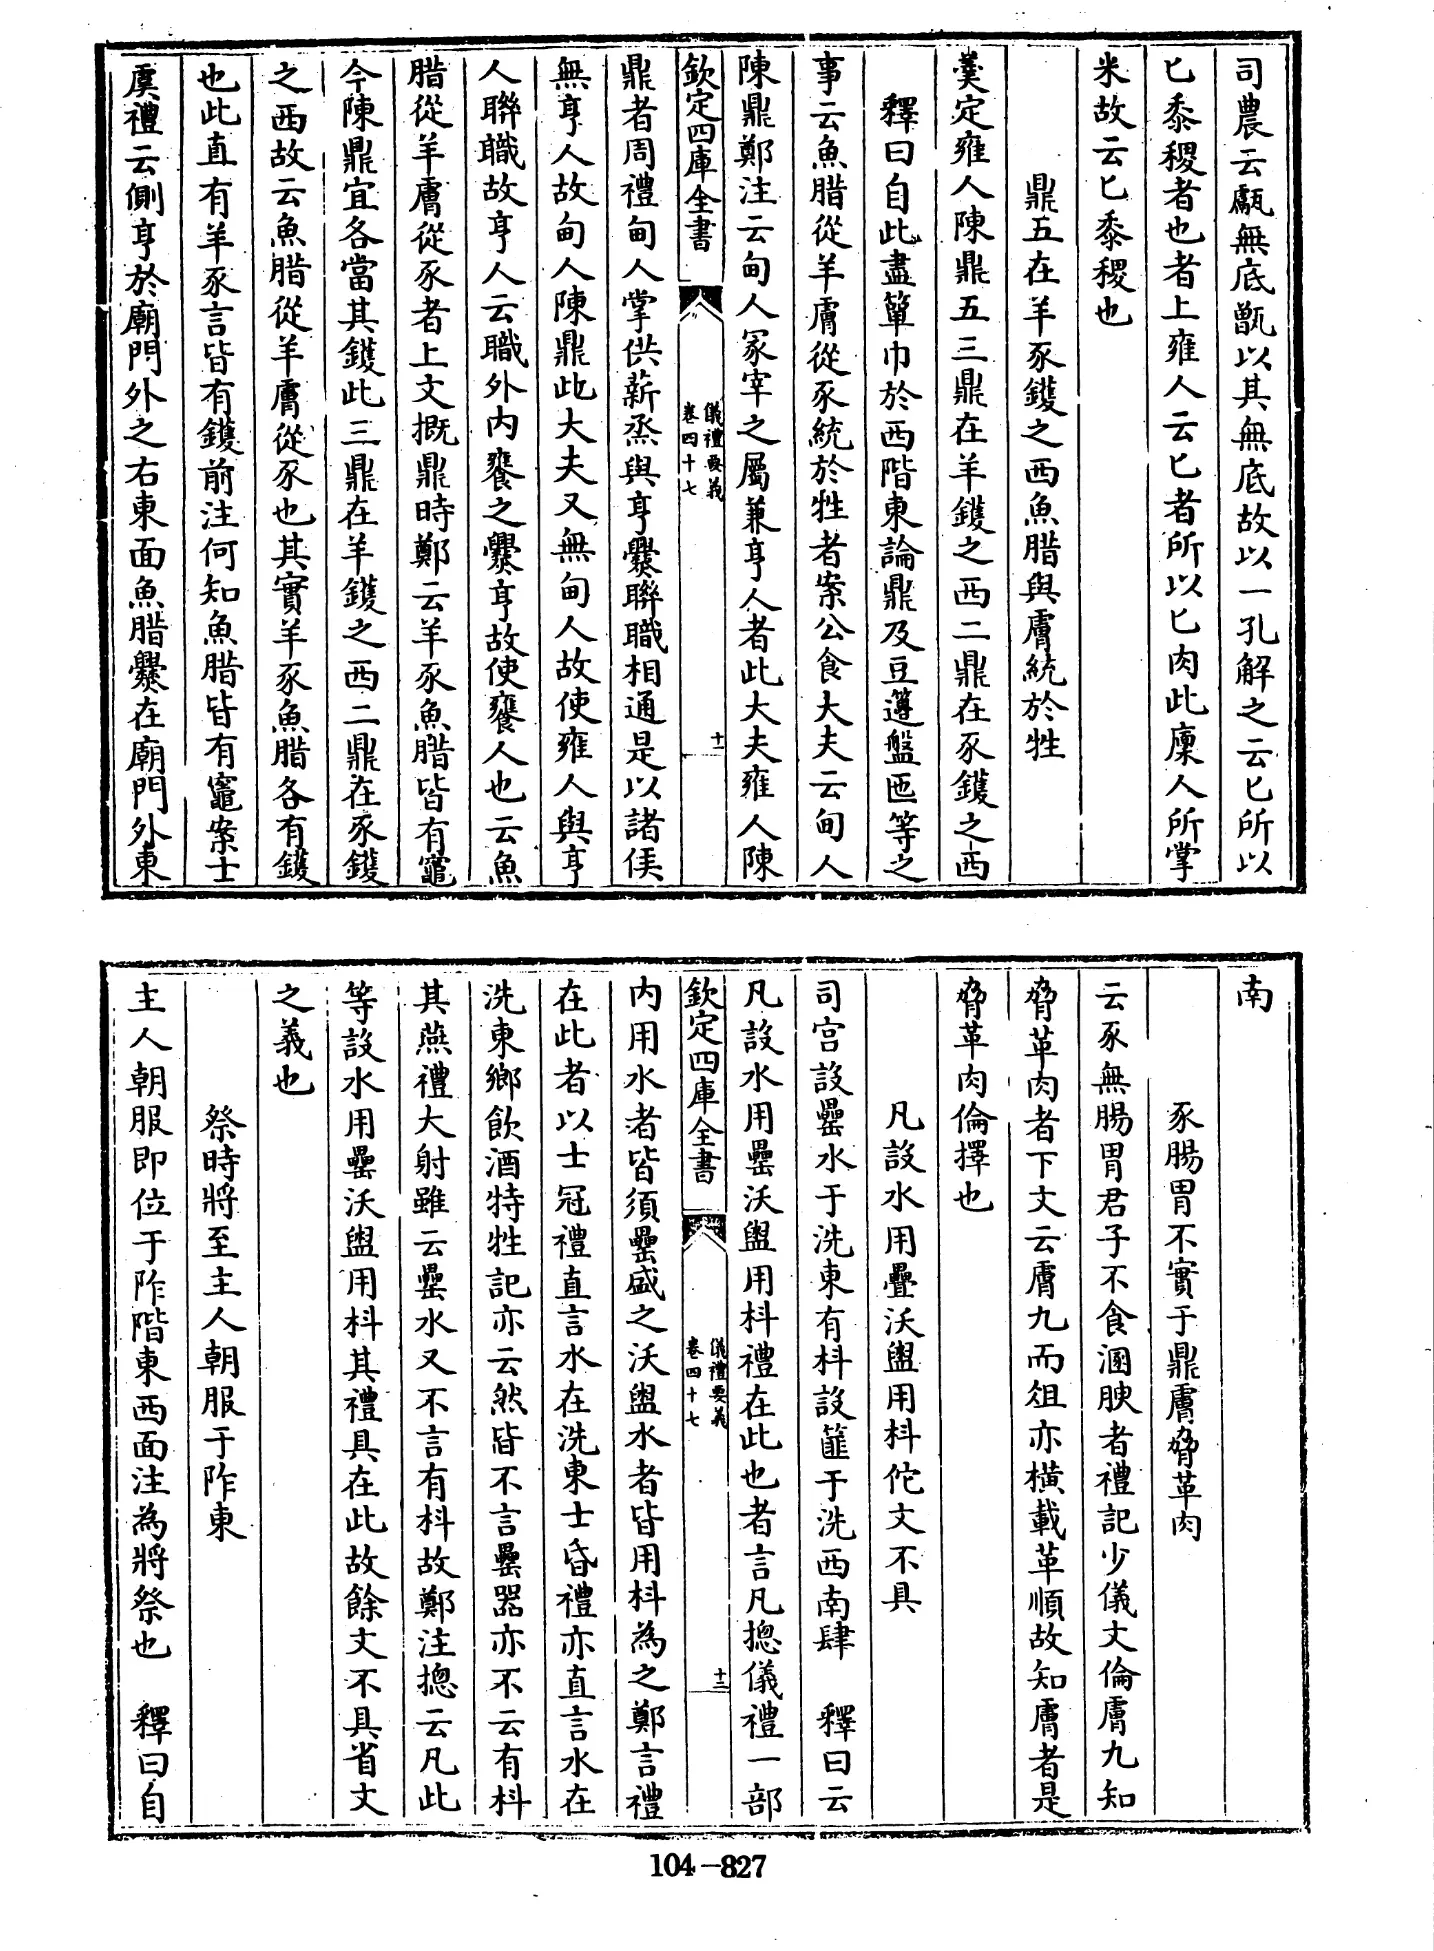 司農云甗無底甑以其無底故以一孔解之云匕所以
匕黍稷者也者上雍人云匕者所以匕肉此廩人所掌
米故云匕黍稷也
鼎五在羊豕鑊之西魚腊與膚統於牲
羹定雍人陳鼎五三鼎在羊鑊之西二鼎在豕鑊之西
釋曰自此盡簞巾於西階東論鼎及豆籩盤匜等之
事云魚腊從羊膚從豕統於牲者案公食大夫云甸人
陳鼎鄭注云甸人冢宰之屬兼亨人者此大夫雍人陳
欽定四庫全書
儀禮要義
卷四十七
十二
鼎者周禮甸人掌供薪烝與亨爨聯職相通是以諸侯
無亨人故甸人陳鼎此大夫又無甸人故使雍人與亨
人聯職故亨人云職外内饔之爨亨故使饔人也云魚
腊從羊膚從豕者上文概鼎時鄭云羊豕魚腊皆有竈
今陳鼎宜各當其鑊此三鼎在羊鑊之西二鼎在豕鑊
之西故云魚腊從羊膚從豕也其實羊豕魚腊各有鑊
也此直有羊豕言皆有鑊前注何知魚腊皆有竈案士
虞禮云側亨於廟門外之右東面魚腊爨在廟門外東
南
豕腸胃不實于鼎膚脅革肉
云豕無腸胃君子不食溷腴者禮記少儀文倫膚九知
脅革肉者下文云膚九而俎亦橫載革順故知膚者是
脅革肉倫擇也
凡設水用罍沃盥用枓佗文不具
司宮設罍水于洗東有枓設篚于洗西南肆　釋曰云
凡設水用罍沃盥用枓禮在此也者言凡摠儀禮一部
欽定四庫全書
儀禮要義
卷四十七
十三
内用水者皆須罍盛之沃盥水者皆用枓為之鄭言禮
在此者以士冠禮直言水在洗東士昏禮亦直言水在
洗東鄉飲酒特牲記亦云然皆不言罍器亦不云有枓
其燕禮大射雖云罍水又不言有枓故鄭注摠云凡此
等設水用罍沃盥用枓其禮具在此故餘文不具省文
之義也
祭時將至主人朝服于阼東
主人朝服即位于阼階東西面注為將祭也　釋曰自
104-827